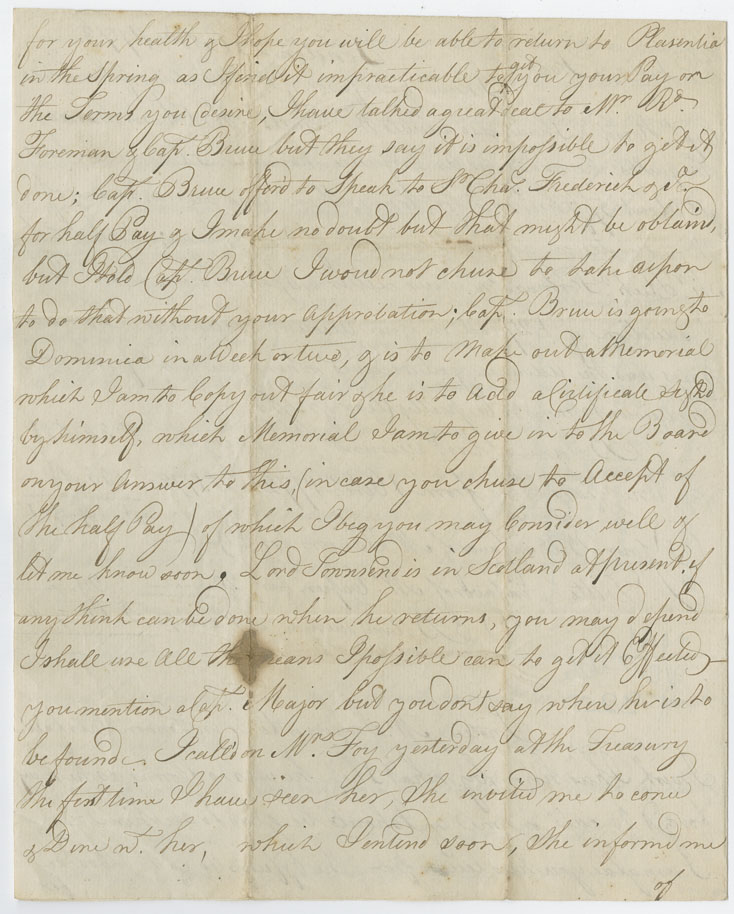 for your health & I hope you will be able to return to Plasentia
in the Spring as I find it impracticable to get you your Pay on
the Terms you desire, I have talked a great deal to Mr. Rd.
Foreman & Capt. Bruce but they say it is impossible to get it
done; Capt. Bruce offord to Speak to Sr. Chas. Frederick &
for half Pay & I make no doubt but that might be obtaind,
but I told Capt. Bruce I woud not chuse to take upon
to do that without your Approbation; Capt. Bruce is going to
Dominica in a Week or two, & is to Make out a Memorial
which I am to Copy out fair & he is to Add a Certificate signd
by himself, which Memorial I am to give in to the Board
on your Answer to this, (in case you chuse to Accept of
the half Pay) of which I beg you may Consider well &
let me know soon. Lord Townsend is in Scotland at present, if
any think can be done when he returns, you may depend
I shall use All the means I possible can to get it Effected
you mention a Capt. Major but you dont say when he is to
be found. I calld on Mrs. Foy yesterday at the Treasury
the first time I have seen her, She invited me to come
& Dine wt. her, which I intend soon, She informd me
of